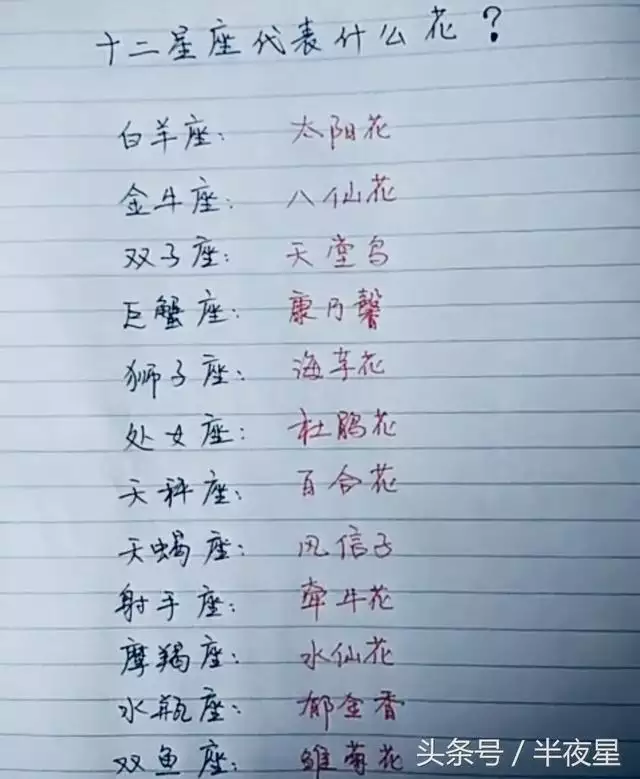 十二星座代表什么花？
白羊座：太阳花
金牛座：八仙花
双子座：天堂鸟
巨蟹座：康乃馨
狮子座：海芋花
处女座：杜鹃花
天秤座：百合花
天蝎座：风信子
射手座：牵牛花
摩羯座：水仙花
水瓶座：郁金香
双鱼座：雏菊花
头条号／半夜星